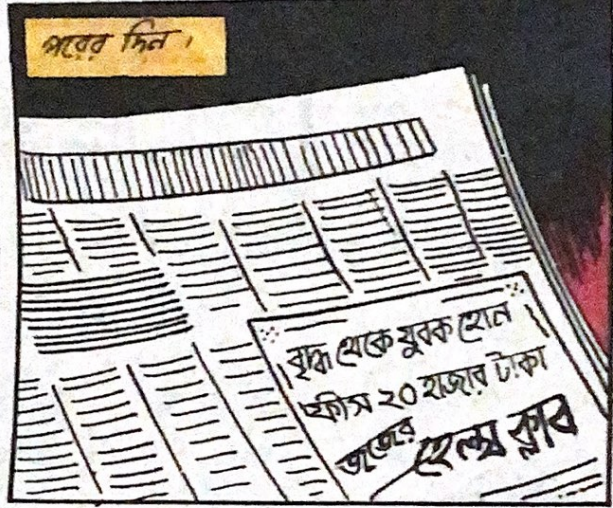 পরের দিন।
বৃদ্ধ থেকে যুবক হোন
ফীস ২০ হাজার টাকা
জজের হেল্থ ক্লাব